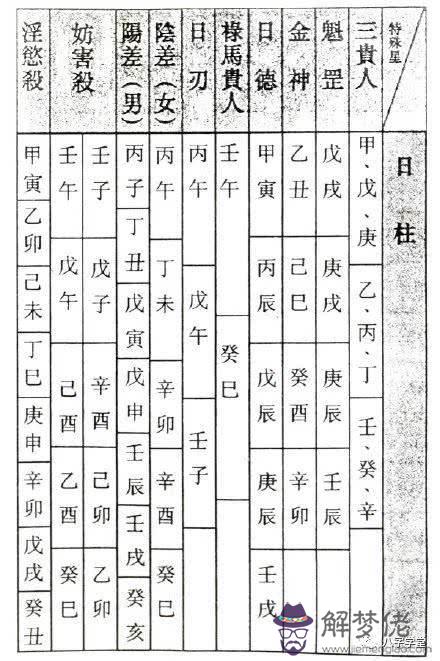 特殊星
日柱
三貴人
甲、戊、庚
乙、丙、丁
壬、癸、辛
魁罡
戊戌
庚戌
庚辰
壬辰
金神
乙丑
己巳
癸酉
辛卯
日德
甲寅
丙辰
戊辰
庚辰
壬戌
祿馬貴人
壬午
癸巳
日刃
丙午
戊午
壬子
陰差(女)
丙午
丁未
辛卯
辛酉
癸巳
陽差(男)
丙子
丁丑
戊寅
戊申
壬辰
壬戌
癸亥
妨害殺
壬子
戊子
辛酉
己卯
乙卯
壬午
戊午
己酉
乙酉
癸巳
淫慾殺
甲寅
乙卯
己未
丁巳
庚申
辛卯
戊戌
癸丑
解梦佬
www.jiemenglao.com
八字学堂